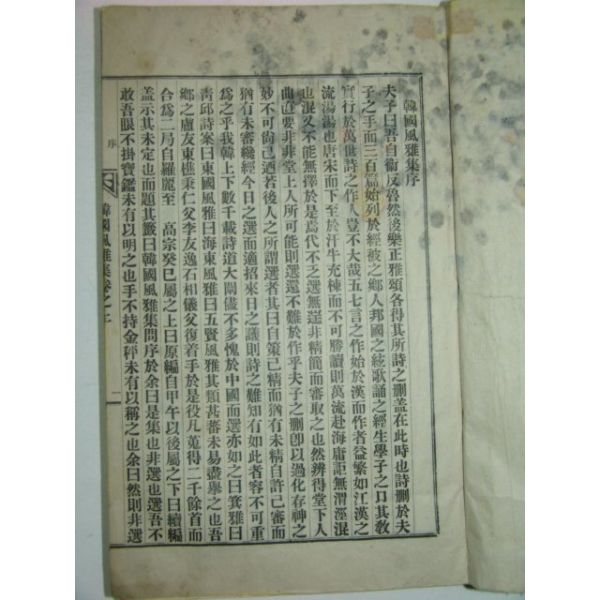 韓國風雅集序
夫子曰吾自衛反魯然後樂正雅頌各得其所詩之刪盖在此時也詩刪於夫
子之手而三百篇始列於經被之鄕人邦國之絃歌誦之經生學子之口其敎
實行於萬世詩之作人豈不大哉五七言之作始於漢而作者益繁如江漢之
流湯湯也唐宋而下至於汗牛充棟而不可勝讀則萬流赴海庸詎無渭涇混
也混又不能無擇於是焉代不乏選無逕非精簡而審取之也然辨得堂下人
曲直要非堂上人所可能則選還不難於作乎夫子之刪卽以過化存神之
妙不可尙已迺若後人之所謂選者其曰自策己精而猶有未精自許己審而
猶有未審纔經今日之選而適招來日之議則詩之難知有如此者容不可重
爲之乎我韓上下數千載詩道大闡儘不多愧於中國而選亦如之曰箕雅曰
靑邱詩案曰東國風雅曰海東風雅曰五賢風雅其類甚蕃未易盡擧之也吾
鄕之盧友東樵秉仁父李友逸石相儀父復着手於是役凡蒐得二千餘首而
合爲二局自羅麗至 高宗癸巳屬之上曰原編自甲午以後屬之下曰續編
盖示其未定也而題其籖曰韓國風雅集問序於余曰是集也非選也選吾不
敢吾眼不掛寶鑑未有以明之也手不持金秤未有以稱之也余曰然則非選
序
韓國風雅集卷之上
一